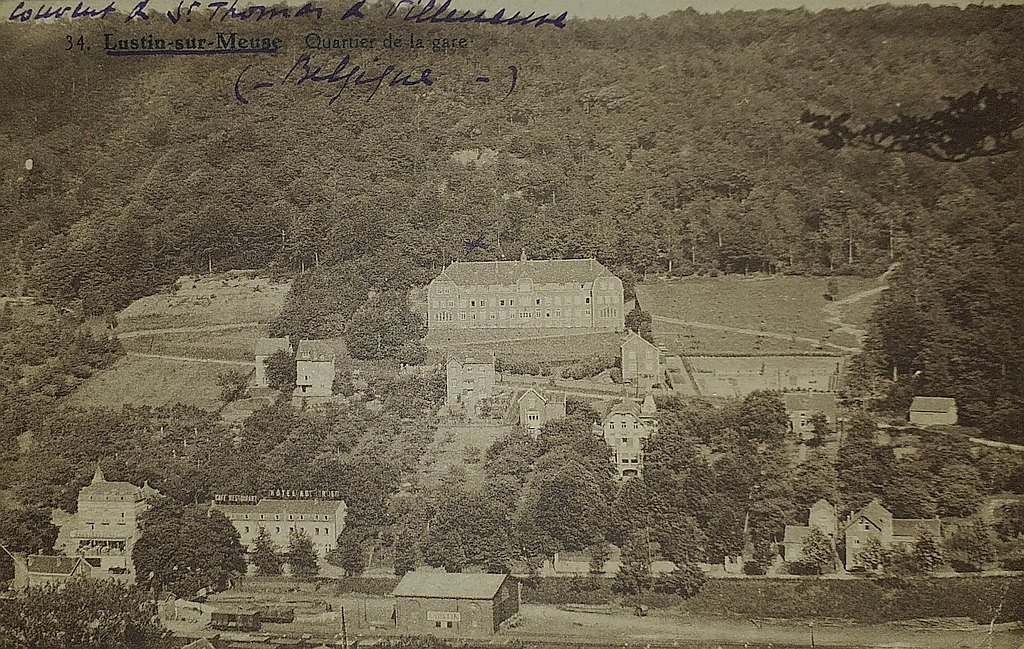 Couvent de St Thomas de Villeneuve
34. Lustin-sur-Meuse Quartier de la gare
(- Belgique -)
CAFÉ RESTAURANT HÔTEL